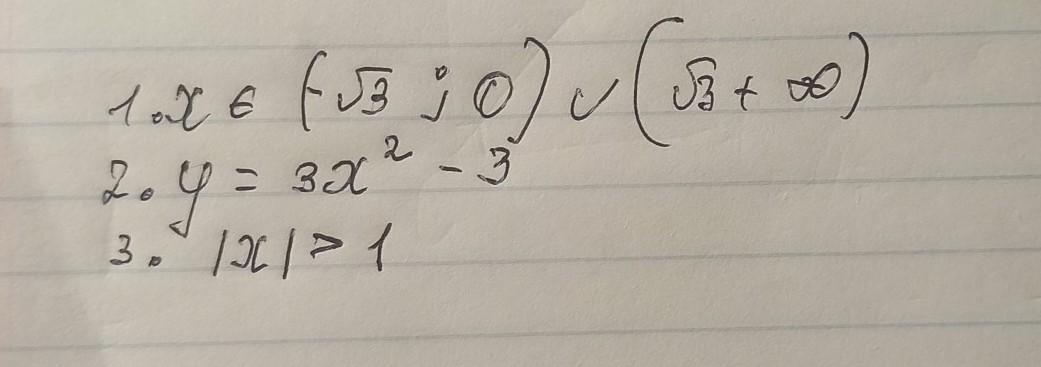 1. x ∈ (-√3 ; 0) ∪ (√3 + ∞)
2. y = 3x² - 3
3. |x| > 1